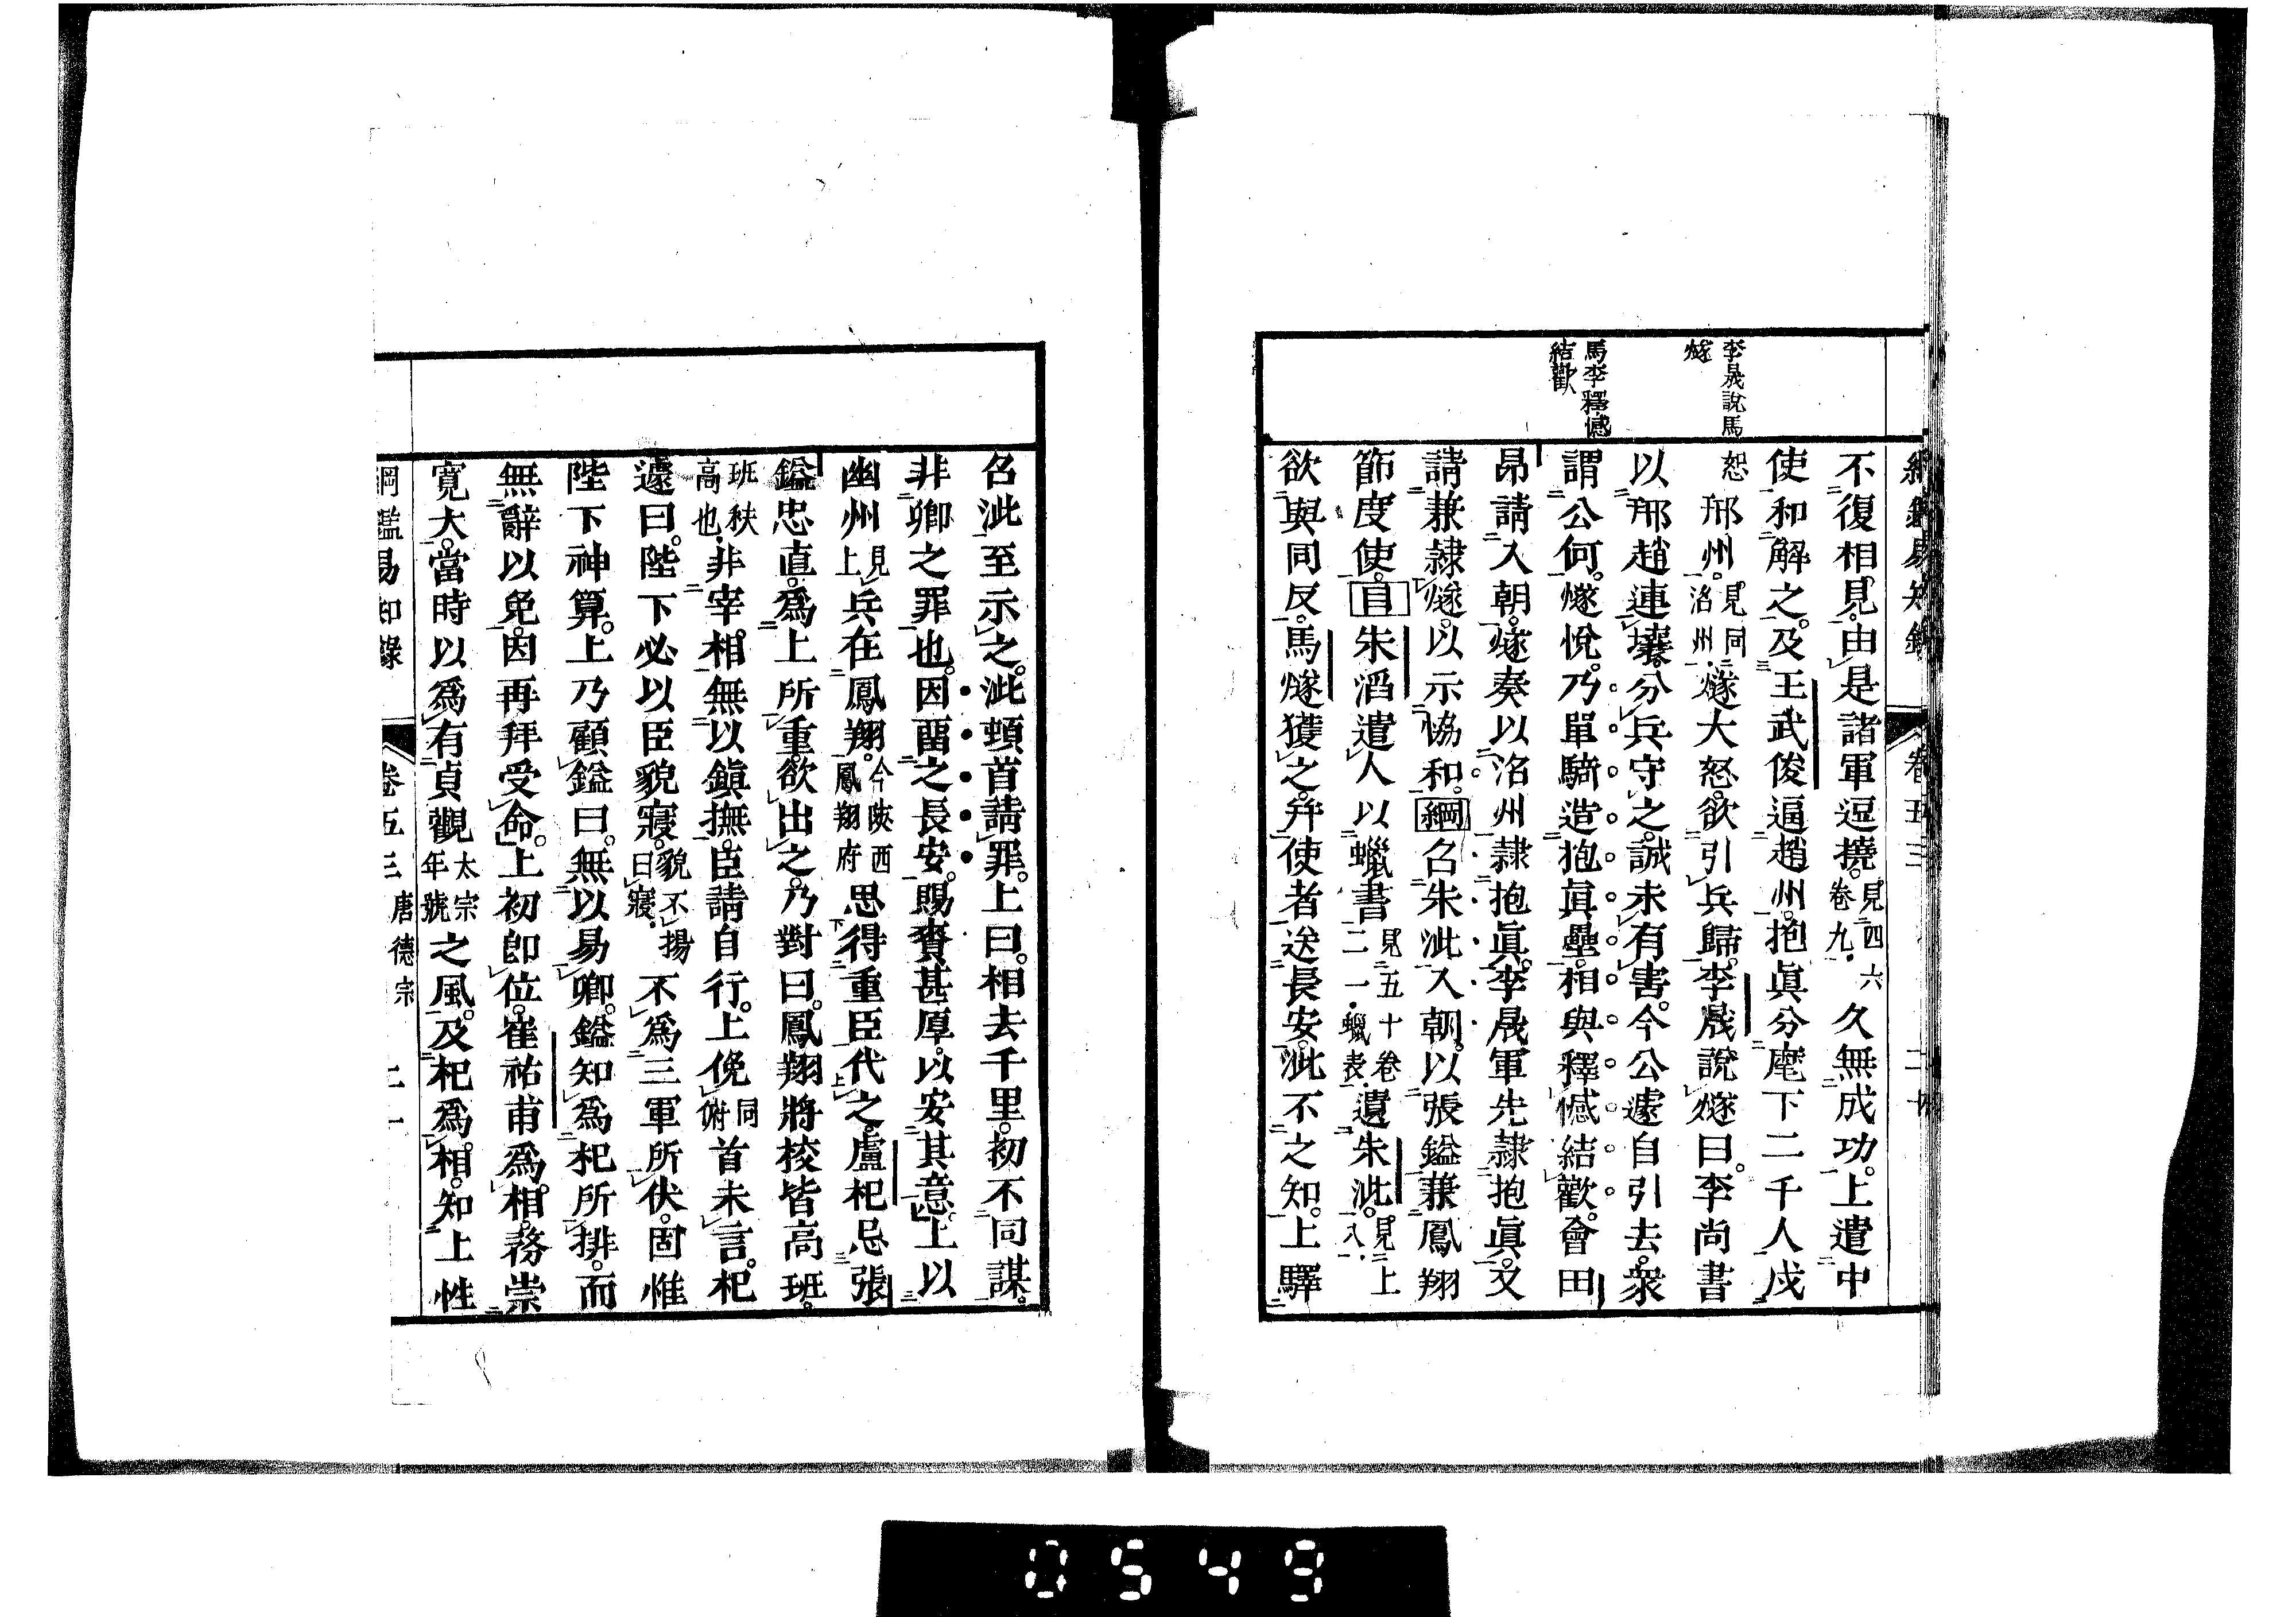 綱鑑易知錄 卷五三 二十
李晟說馬
燧
馬李釋憾
結歡
不復相見。由是諸軍逗撓。見四六卷九。久無成功。上遣中
使和解之。及王武俊逼趙州。抱眞分麾下二千人戍
恕邢州。見同洺州。燧大怒。欲引兵歸。李晟說燧曰。李尚書
以邢趙連壤。分兵守之。誠未有害。今公遽自引去。衆
謂公何。燧悅。乃單騎造抱眞壘。相與釋憾結歡。會田
昂請入朝。燧奏以洺州隸抱眞。李晟軍先隸抱眞。又
請兼隸燧。以示協和。綱召朱泚入朝。以張鎰兼鳳翔
節度使。目朱滔遣人以蠟書見五十卷二一蠟表。遺朱泚。見上八。
欲與同反。馬燧獲之。幷使者送長安。泚不之知。上驛
召泚至示之。泚頓首請罪。上曰。相去千里。初不同謀。
非卿之罪也。因畱之長安。賜賚甚厚。以安其意。上以
幽州見上兵在鳳翔。今陝西鳳翔府思得重臣代之。盧杞忌張
鎰忠直。爲上所重。欲出之。乃對曰。鳳翔將校皆高班。
班秩高也。非宰相。無以鎭撫。臣請自行。上俛同俯首未言。杞
遽曰。陛下必以臣貌寢。貌不揚曰寢。不爲三軍所伏。固惟
陛下神算。上乃顧鎰曰。無以易卿。鎰知爲杞所排。而
無辭以免。因再拜受命。上初卽位。崔祐甫爲相。務崇
寬大。當時以爲有貞觀太宗年號之風。及杞爲相。知上性
綱鑑易知錄 卷五三 唐德宗 二一
0549